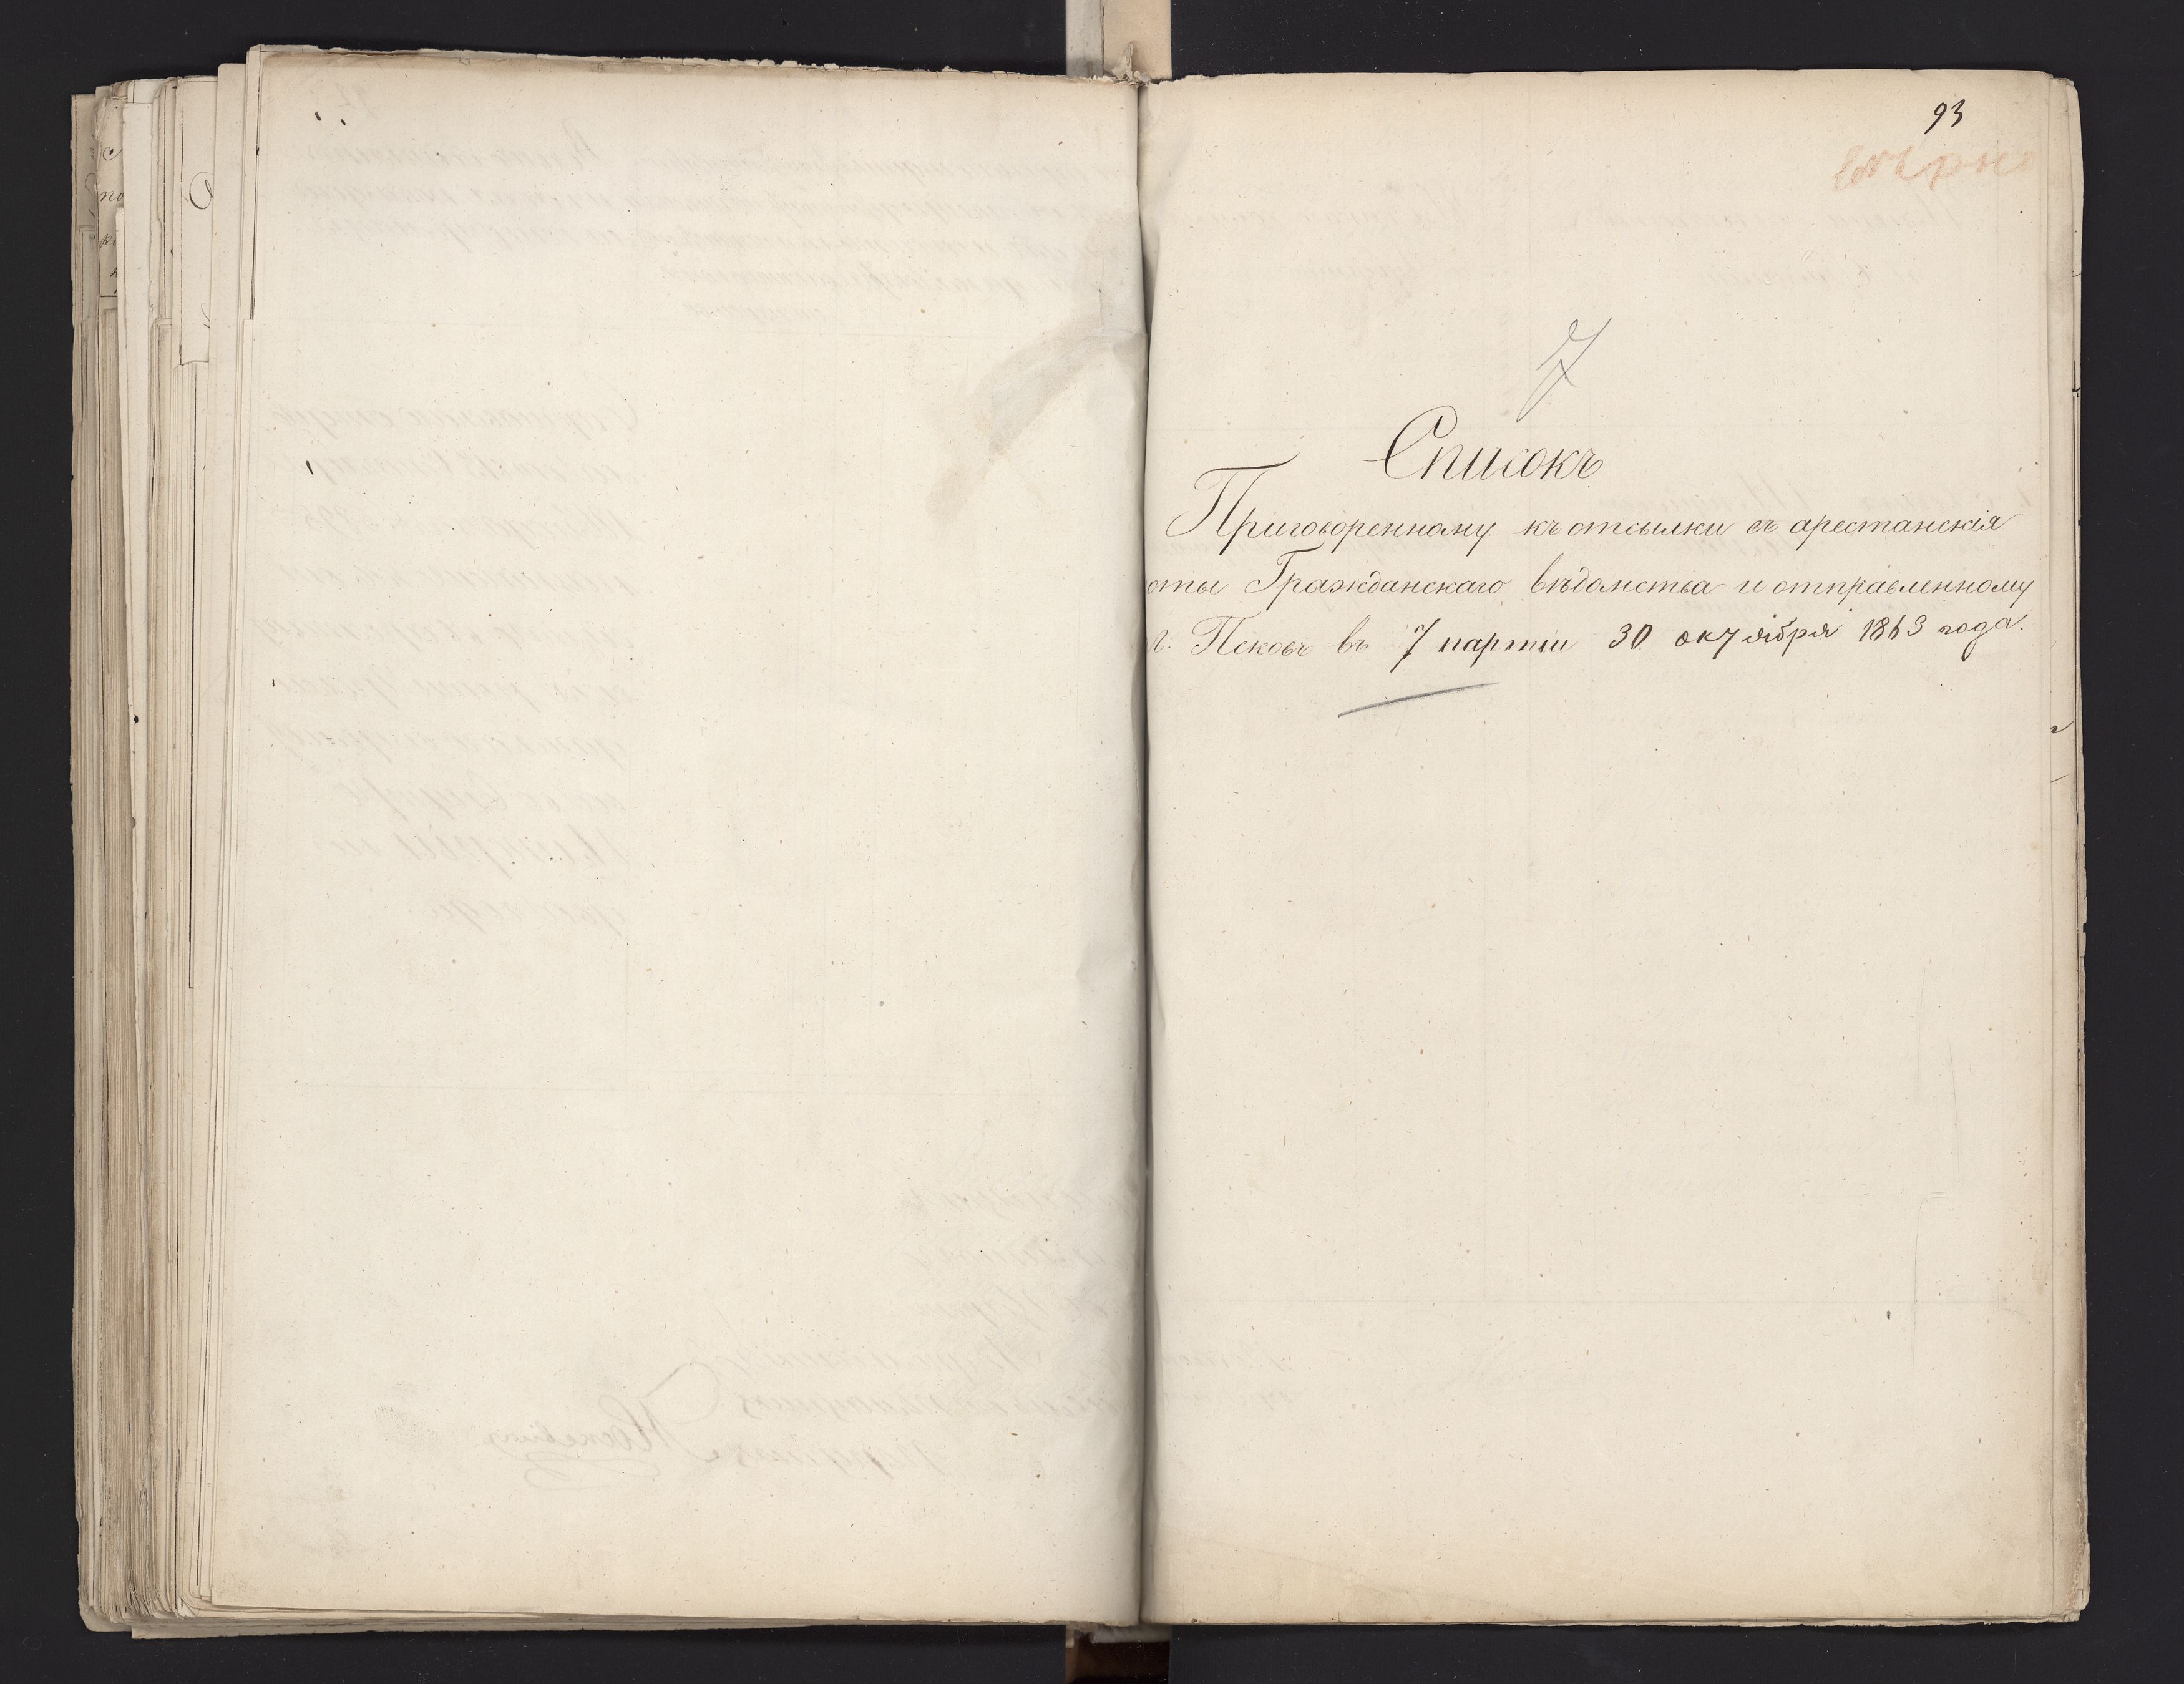 93
вѣрно
7
Списокъ
Приговоренному къ отсылки въ арестанскія
оты Гражданскаго вѣдомства и отправленному
г. Псковъ въ 7 партіи 30 октября 1863 года.